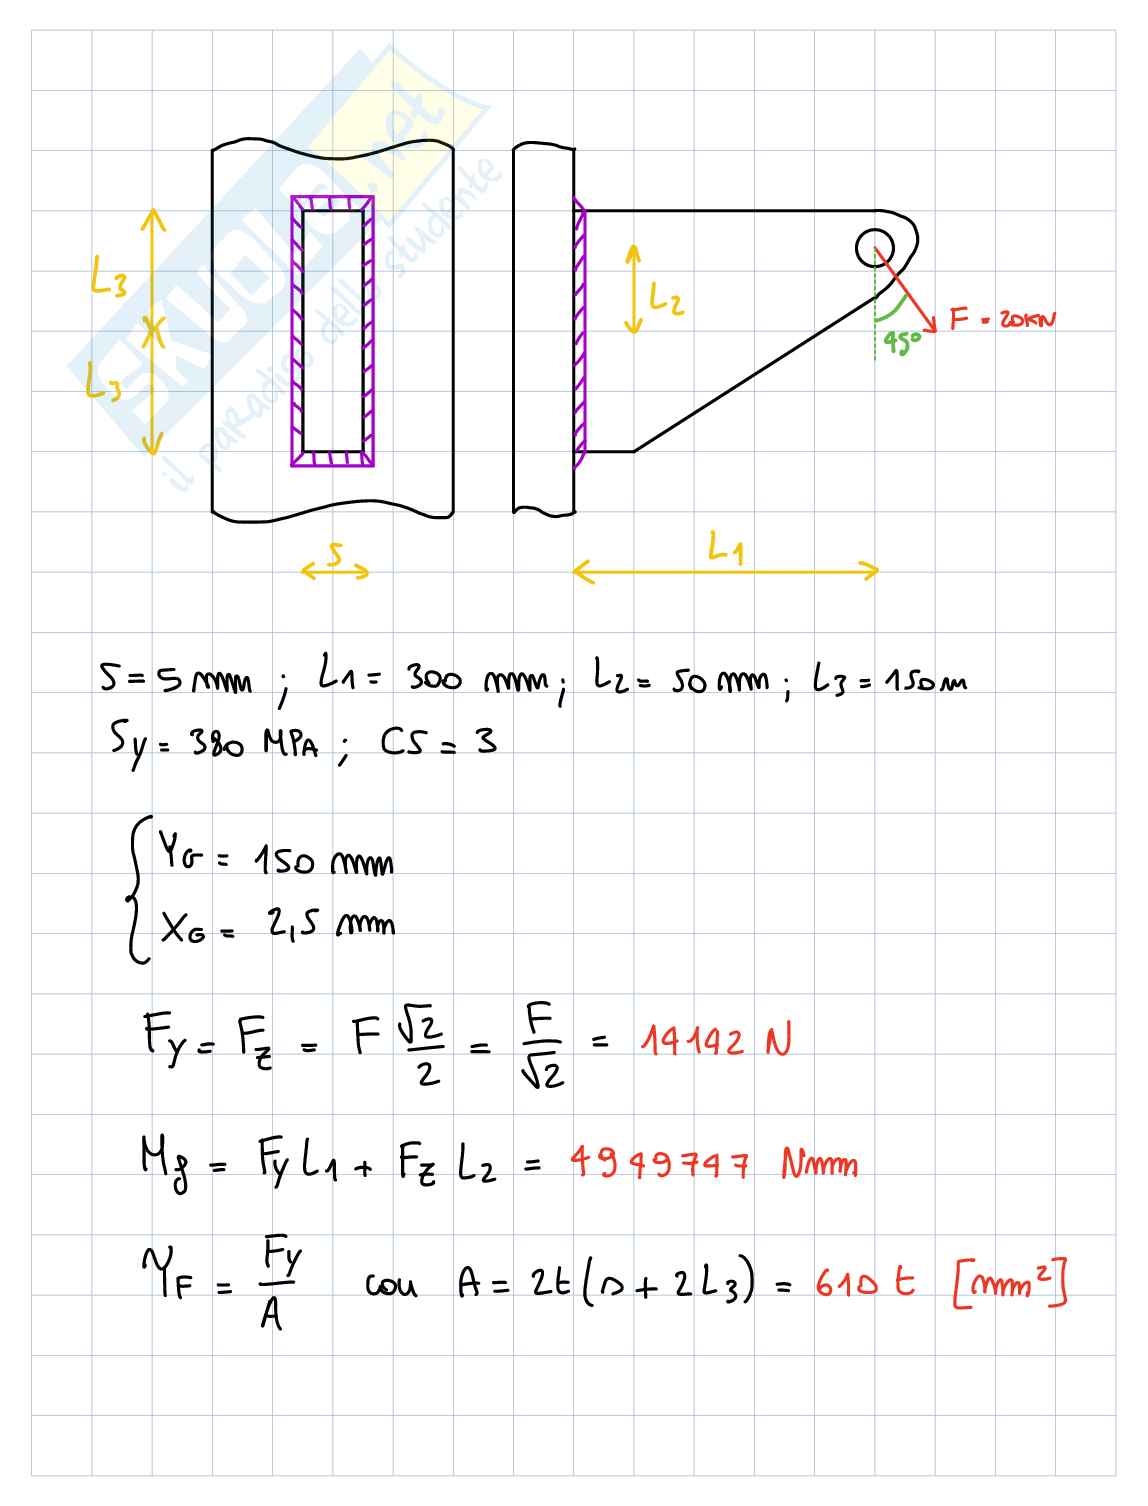 SKUOLA.net
il paradiso dello studente
L3
L3
L2
F = 20KN
45°
s
L1
S = 5 mm ; L1 = 300 mm ; L2 = 50 mm ; L3 = 150 m
Sy = 380 MPA ; CS = 3
YG = 150 mm
XG = 2,5 mm
Fy = Fz = F √2/2 = F/√2 = 14142 N
Mf = Fy L1 + Fz L2 = 4949747 Nmm
τF = Fy/A con A = 2t(s + 2L3) = 610 t [mm²]